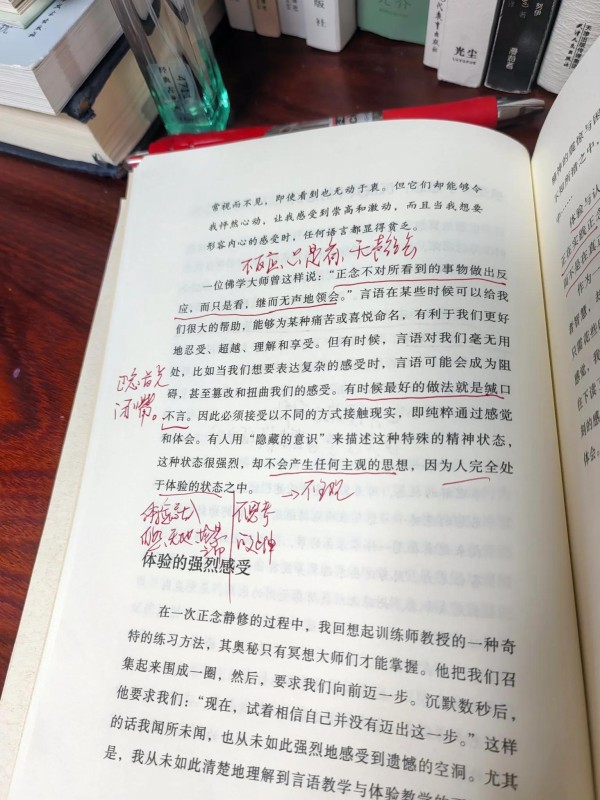 版社
光尘
常视而不见，即使看到也无动于衷。但它们却能够令
我怦然心动，让我感受到崇高和激动，而且当我想要
形容内心的感受时，任何语言都显得贫乏。
不反应、只是看、无声领会
一位佛学大师曾这样说：“正念不对所看到的事物做出反
应，而只是看，继而无声地领会。”言语在某些时候可以给我
们很大的帮助，能够为某种痛苦或喜悦命名，有利于我们更好
地忍受、超越、理解和享受。但有时候，言语对我们毫无用
处，比如当我们想要表达复杂的感受时，言语可能会成为阻
碍，甚至篡改和扭曲我们的感受。有时候最好的做法就是缄口
不言。因此必须接受以不同的方式接触现实，即纯粹通过感觉
和体会。有人用“隐藏的意识”来描述这种特殊的精神状态，
这种状态很强烈，却不会产生任何主观的思想，因为人完全处
于体验的状态之中。
正念首先
闭嘴。
→不主观
不思考
体验的强烈感受
在一次正念静修的过程中，我回想起训练师教授的一种奇
特的练习方法，其奥秘只有冥想大师们才能掌握。他把我们召
集起来围成一圈，然后，要求我们向前迈一步。沉默数秒后，
他要求我们：“现在，试着相信自己并没有迈出这一步。”这样
的话我闻所未闻，也从未如此强烈地感受到遗憾的空洞。尤其
是，我从未如此清楚地理解到言语教学与体验教学的